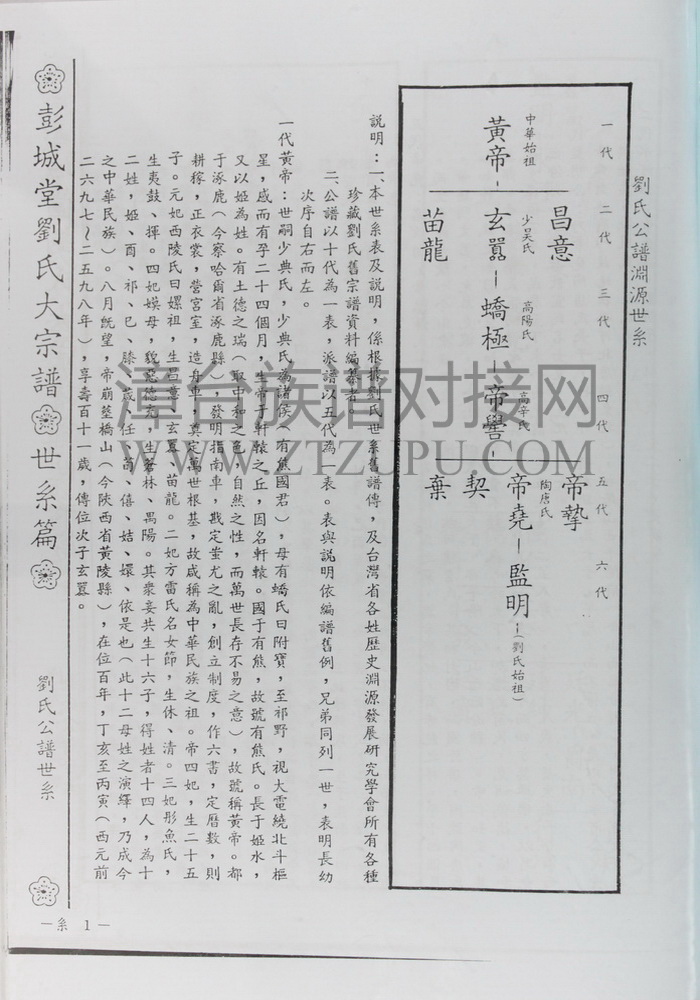 劉氏公譜淵源世系
一代 二代 三代 四代 五代 六代
昌意
帝摯
中華始祖 少昊氏 高陽氏 高辛氏 陶唐氏
黃帝-玄囂-蟜極-帝嚳-帝堯-監明-(劉氏始祖)
契
苗龍
棄
說明:一、本世系表及說明,係根據劉氏世系舊譜傳,及台灣省各姓歷史淵源發展研究學會所有各種
珍藏劉氏舊宗譜資料編纂者。
二、公譜以十代為一表,派譜以五代為一表。表與說明依編譜舊例,兄弟同列一世,表明長幼
次序自右而左。
一代黃帝:世嗣少典氏,少典氏為諸侯(有熊國君),母有蟜氏曰附寶,至祁野,視大電繞北斗樞
星,感而有孕二十四個月,生帝于軒轅之丘,因名軒轅。國于有熊,故號有熊氏。長于姬水,
又以姬為姓。有土德之瑞(取中和之色,自然之性,而萬世長存不易之意),故號稱黃帝。都
于涿鹿(今察哈爾省涿鹿縣),發明指南車,戡定蚩尤之亂,創立制度,作六書,定曆數,則
耕稼,正衣裳,營宮室,造舟車,奠定萬世根基,故咸稱為中華民族之祖。帝四妃,生二十五
子。元妃西陵氏曰嫘祖,生昌意、玄囂、苗龍。二妃方雷氏名女節,生休、清。三妃彤魚氏,
生夷鼓、揮。四妃嫫母,貌惡德充,生蒼林、禺陽。其眾妾共生十六子,得姓者十四人,為十
二姓,姬、酉、祁、巳、滕、葴、任、荀、僖、姞、嬛、依是也(此十二母姓之演繹,乃成今
之中華民族)。八月既望,帝崩葬橋山(今陝西省黃陵縣),在位百年,丁亥至丙寅(西元前
二六九七~二五九八年),享壽百十一歲,傳位次子玄囂。
彭城堂劉氏大宗譜 世系篇 劉氏公譜世系
—系 1—
漳台族谱对接网
WWW.ZTZUPU.COM